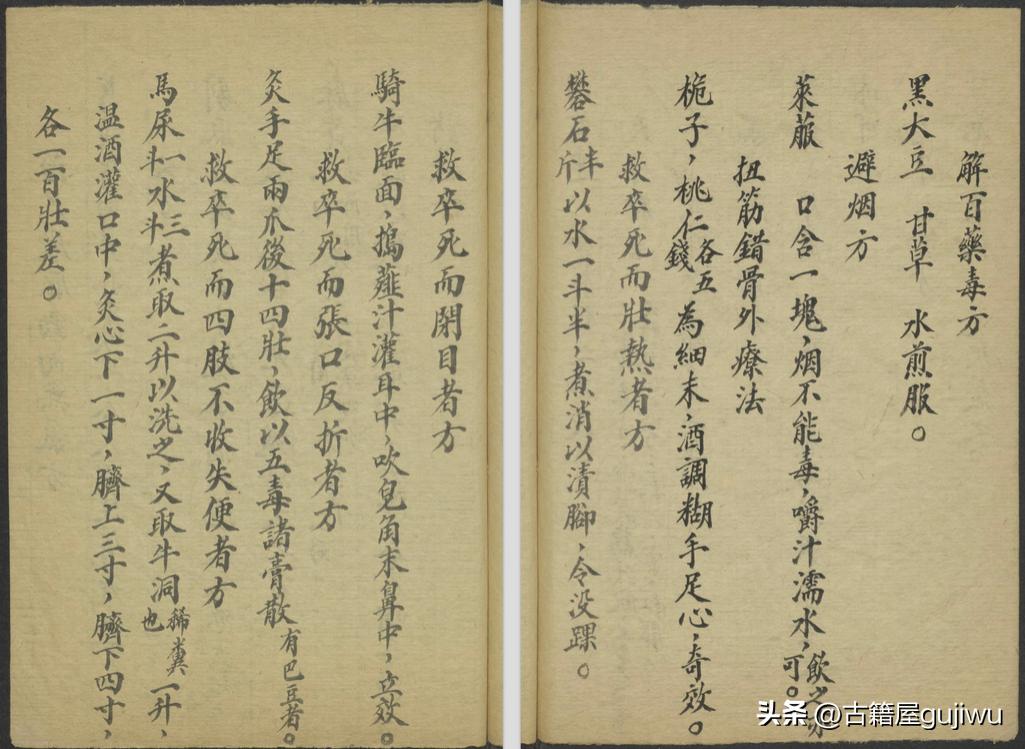 解百藥毒方
黑大豆 甘草 水煎服。
避烟方
萊菔 口含一塊,烟不能毒,嚼汁濡水,飲之亦可。
扭筋錯骨外療法
桅子,桃仁各五錢為細末,酒調糊手足心,奇效。
救卒死而壯熱者方
礬石半斤以水一斗半,煮消以漬腳,令没踝。
救卒死而閉目者方
騎牛臨面,搗薤汁灌耳中,吹皂角末鼻中,立效。
救卒死而張口反折者方
灸手足兩爪後十四壯,飲以五毒諸膏散有巴豆者。
救卒死而四肢不收失便者方
馬尿一斗水三斗煮取二升以洗之,又取牛洞稀糞也一升,
温酒灌口中,灸心下一寸,臍上三寸,臍下四寸,
各一百壯差。
头条 @古籍屋gujiwu